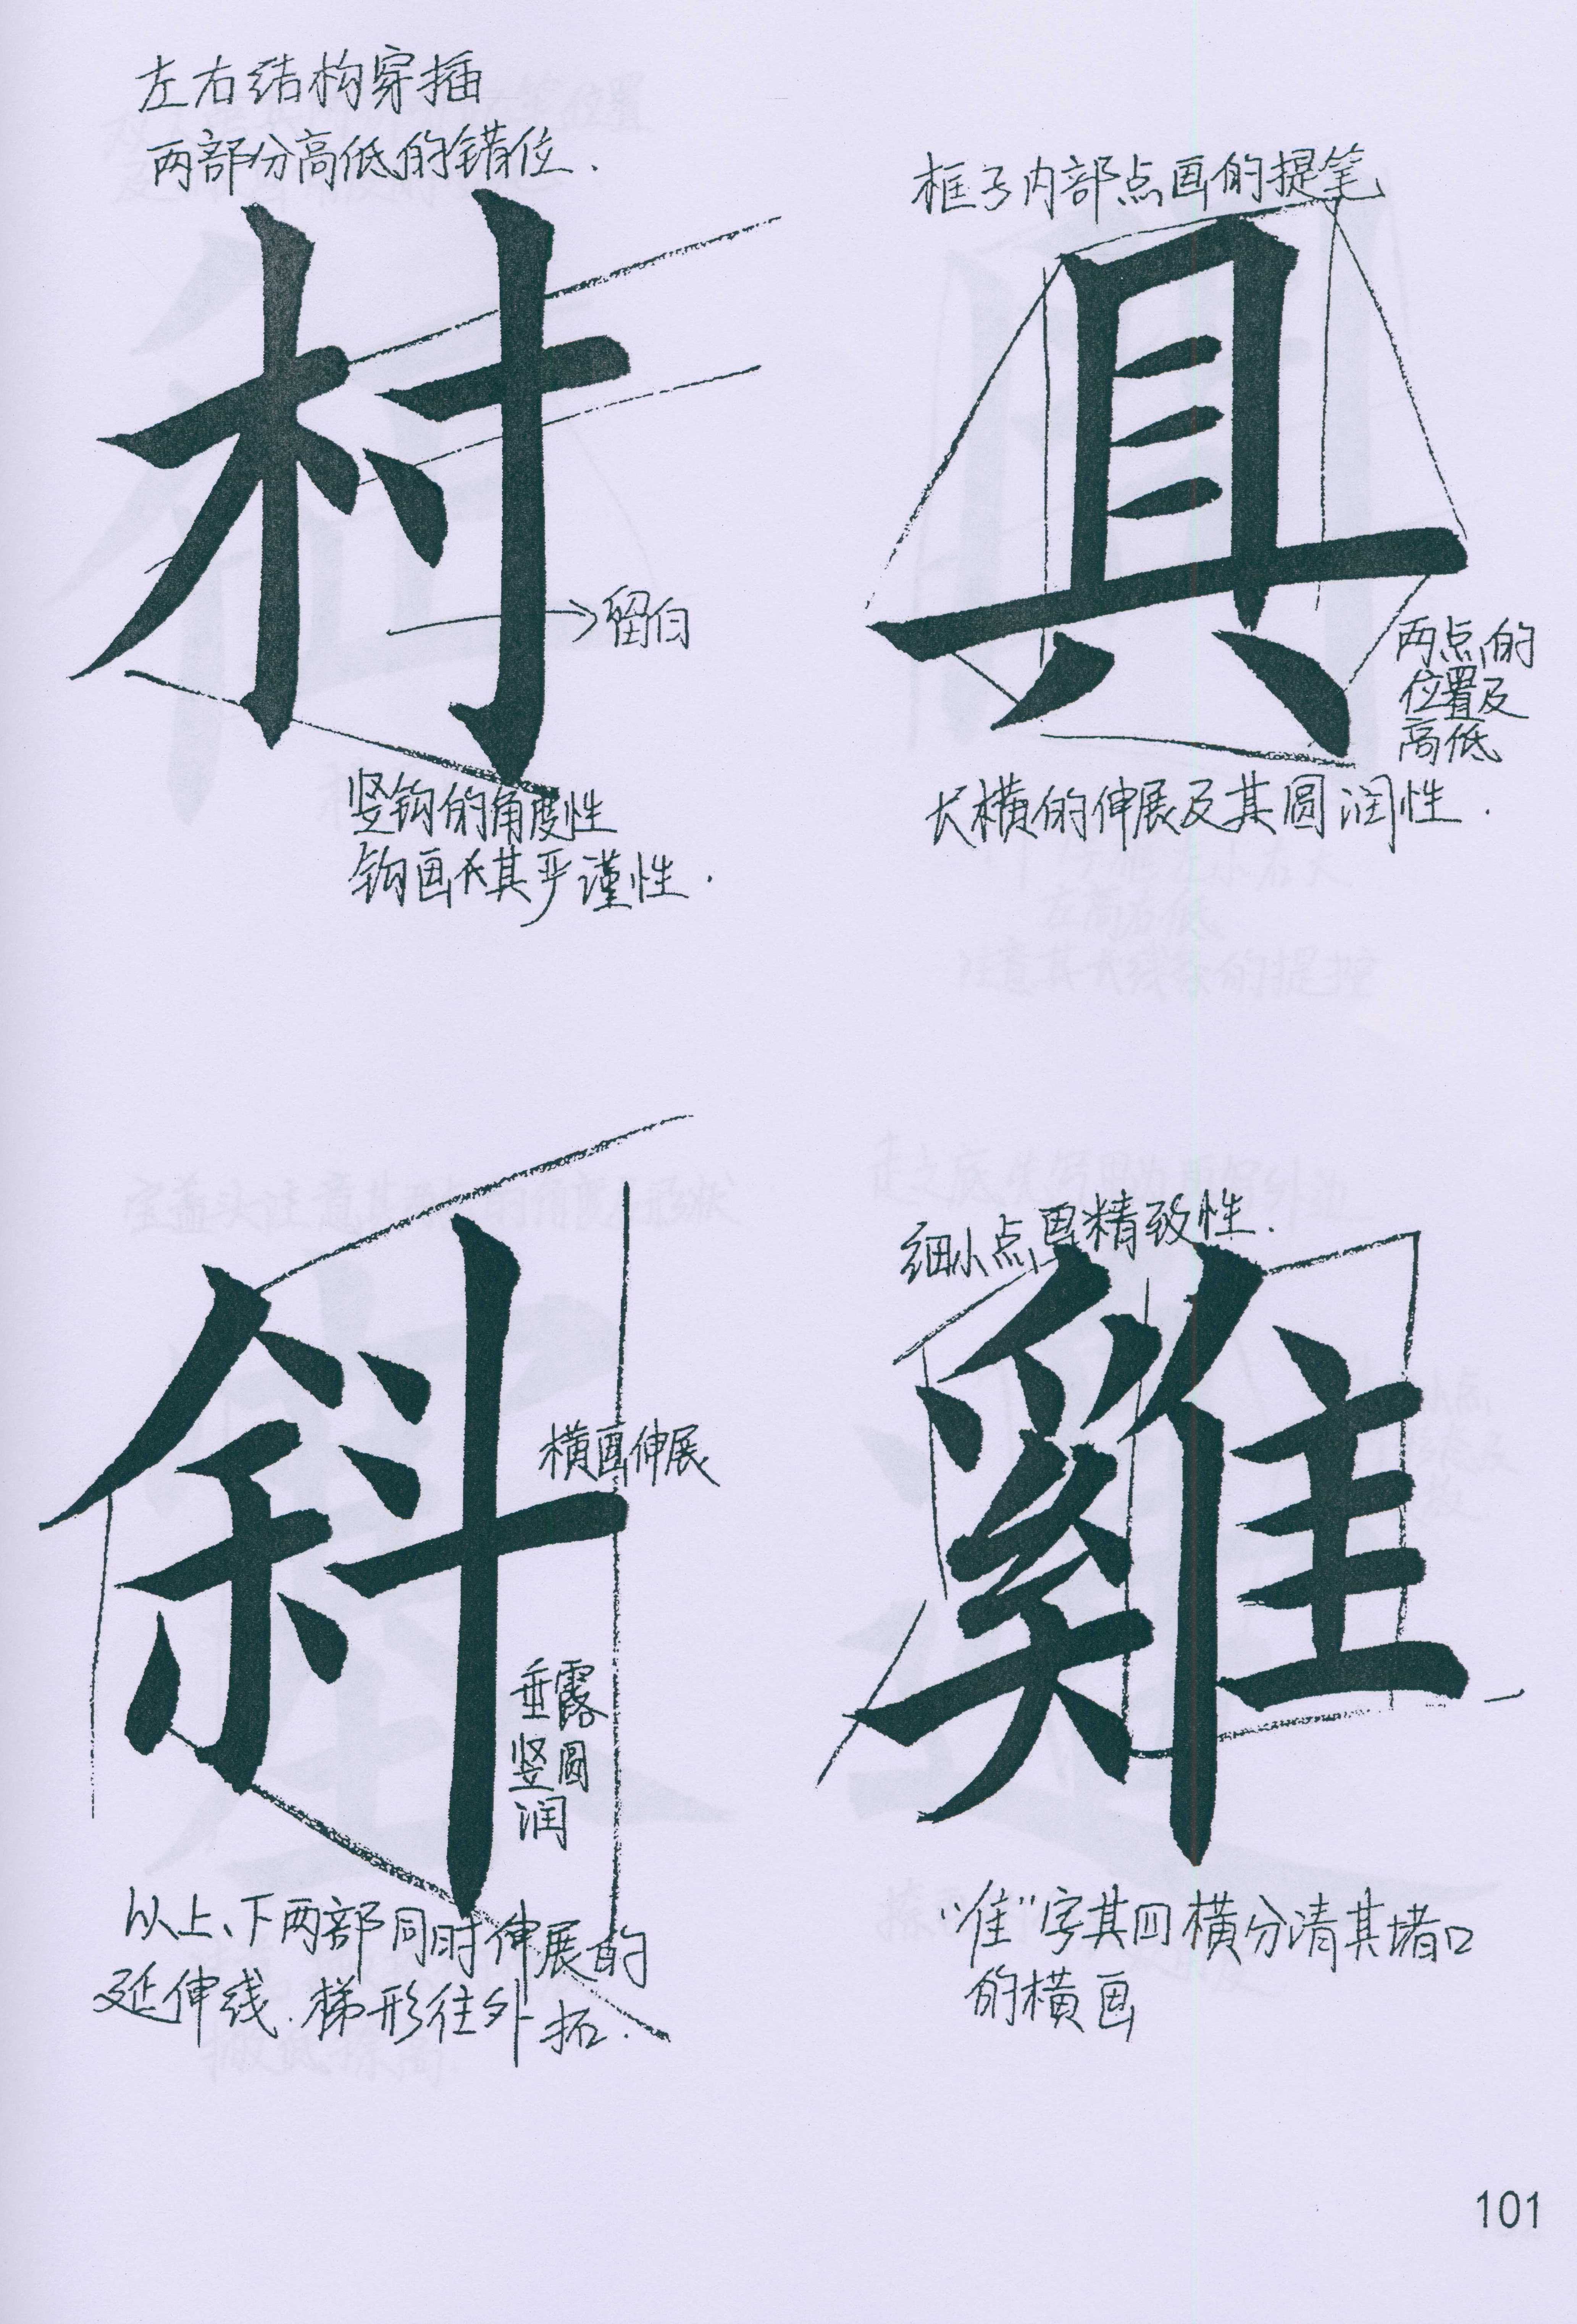 左右结构穿插
两部分高低的错位.
村
→留白
竖钩的角度性
钩画 其严谨性.
框子内部点画的提笔
具
两点的
位置及
高低
长横的伸展及其圆润性.
斜
横画伸展
垂露
竖圆
润
以上、下两部同时伸展的
延伸线.梯形往外拓.
细小点画精致性.
雞
“隹”字其四横分清其堵口
的横画
101